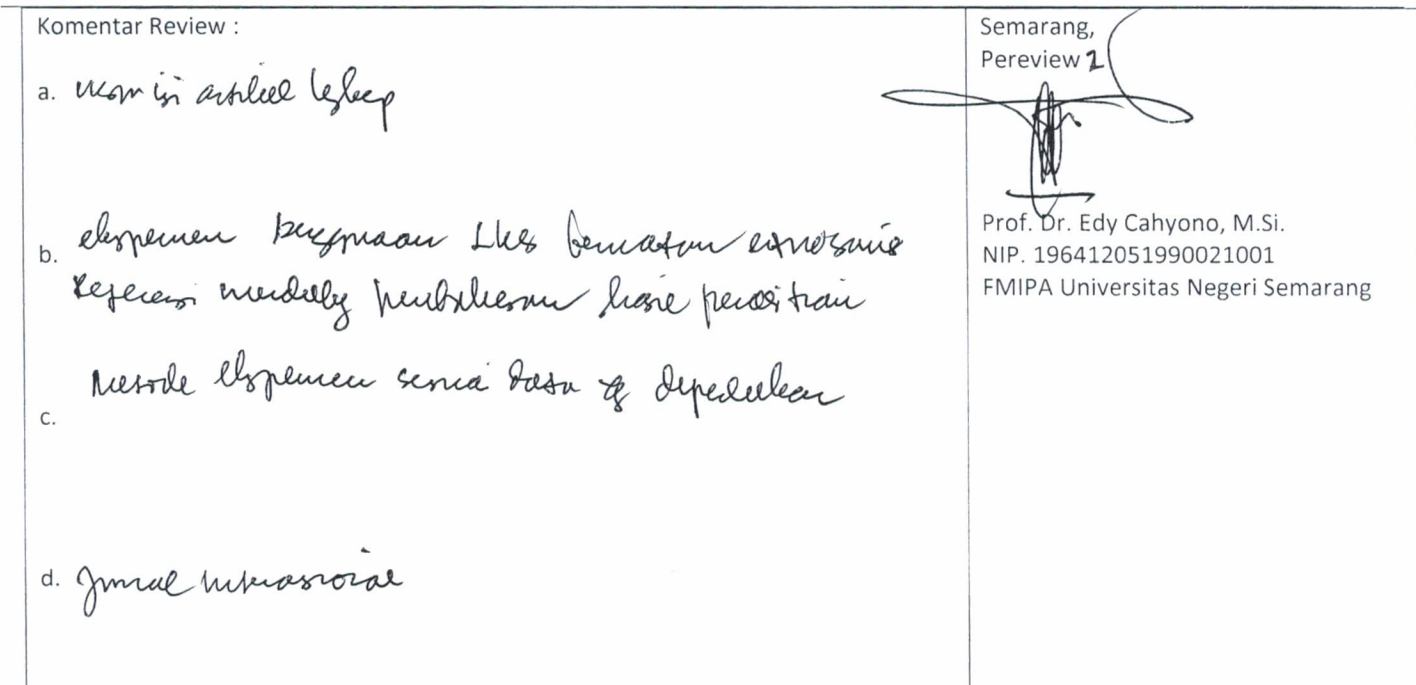 Komentar Review :
a. isi artikel
b. eksperimen penggunaan LKS bermuatan etnosains
Referensi mendukung pembahasan hasil penelitian
Metode eksperimen sesuai data yg diperlukan
c.
d. Jurnal Internasional
Semarang,
Pereview 1
Prof. Dr. Edy Cahyono, M.Si.
NIP. 196412051990021001
FMIPA Universitas Negeri Semarang